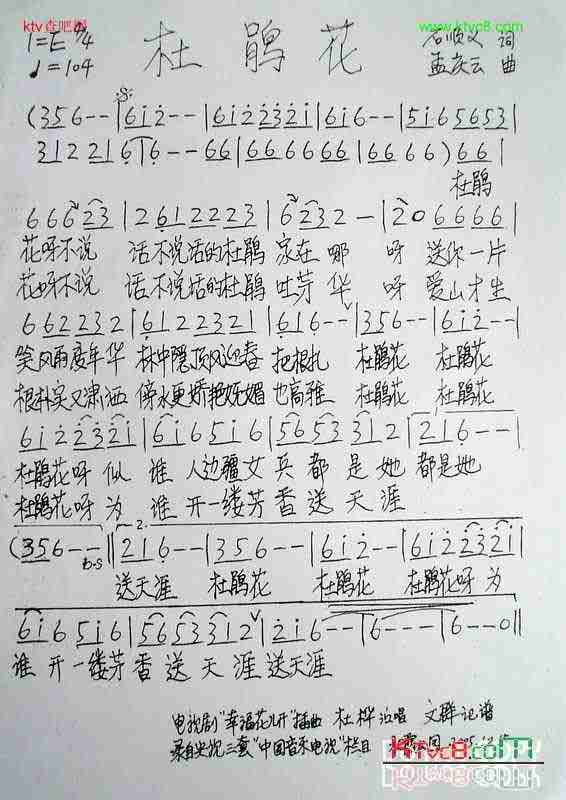 ktv查吧网
www.ktvc8.com
1=E 4/4
♩=104
杜鹃花
石顺义 词
孟庆云 曲
(356--|6i2--|6i2232i|6i6--|5i65653|
3122i6|6--66|66666666|6666)66|
杜鹃
66623|26i2223|6232-|206666|
花呀不说 话不说话的杜鹃 家在哪 呀 送你一片
花呀不说 话不说话的杜鹃 吐芳华 呀 爱山才生
662232|6i22321|6i6--|356--|6i2--|
笑风雨度年华 林中隐顶风迎春 把根扎 杜鹃花 杜鹃花
根朴实又潇洒 傍水更娇艳妩媚 也高雅 杜鹃花 杜鹃花
6i2232i|6i65i6|5653312|2i6--|
杜鹃花呀似 谁人边疆女兵都是她都是她
杜鹃花呀为 谁开一缕芳香送天涯
(356--||2i6--|356--|6i2--|6i2232i|
D.S
送天涯 杜鹃花 杜鹃花 杜鹃花呀为
6i65i6|5653312|2i6--|6---|6--0||
谁开一缕芳香送天涯送天涯
电视剧"幸福花儿开"插曲 杜桦 演唱 文群 记谱
录自央视三套"中国音乐电视"栏目
Ktvc8.com